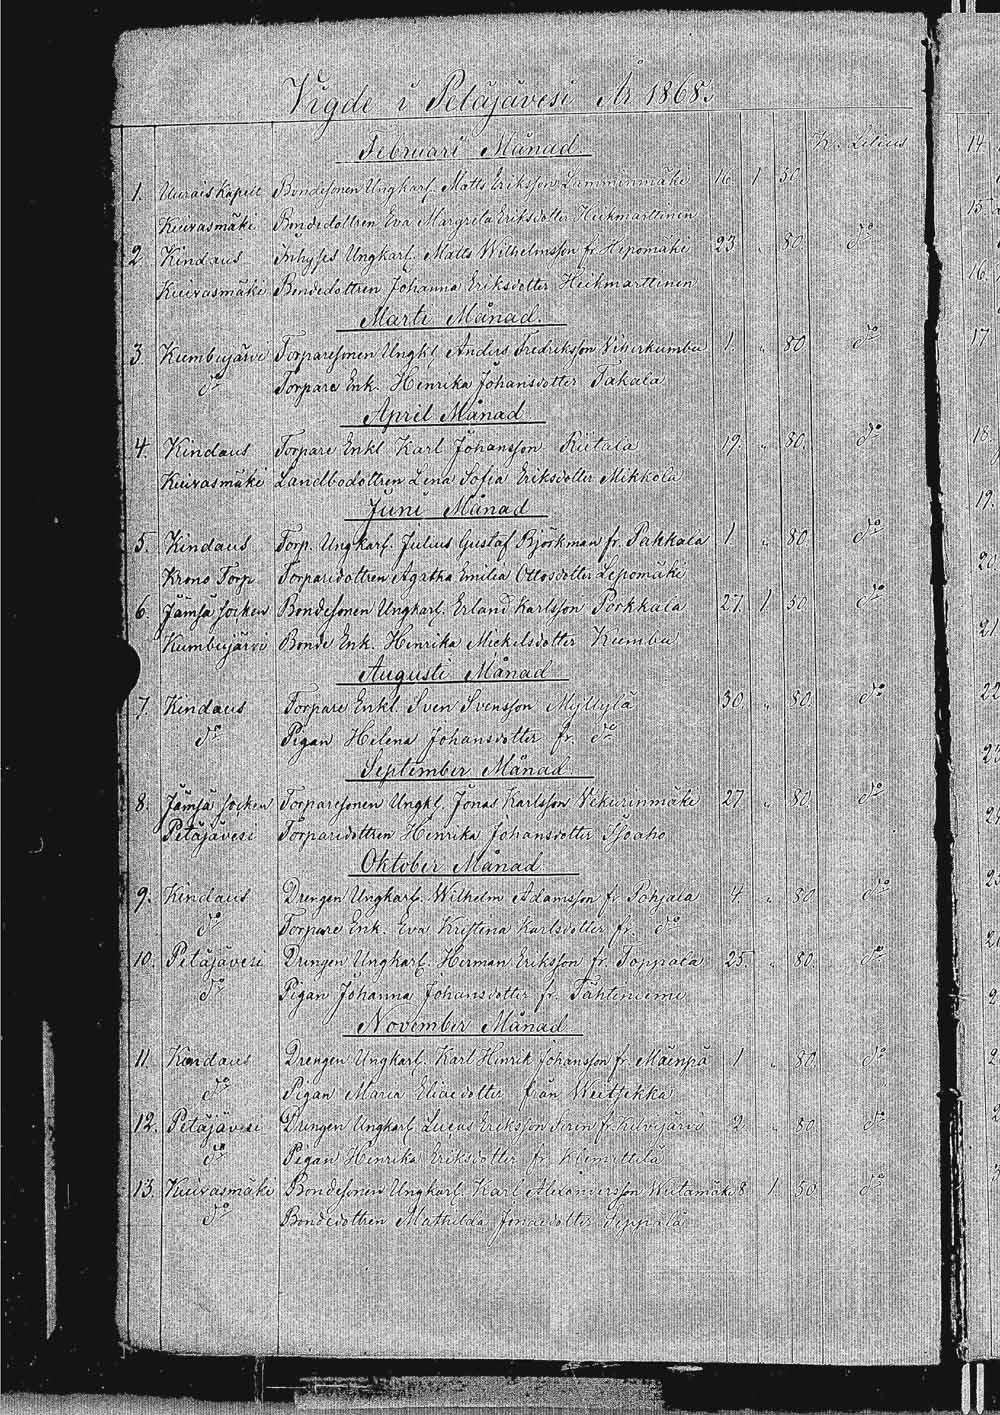 Vigde i Petäjävesi År 1868.
Februari Månad K. Lilius
1. Uurais Kapell Bondesonen Ungkarl. Matts Eriksson Lumminmäki 16. 1 50
Kuivasmäki Bondedottren Eva Margreta Eriksdotter Heikmarttinen
2. Kindaus Inhyses Ungkarl. Matts Wilhelmsson fr. Hepomäki 23 " 80 do
Kuivasmäki Bondedottren Johanna Eriksdotter Heikmarttinen
Marti Månad.
3. Kumbujärvi Torparesonen Ungkl. Anders Fredriksson 1. " 80 do
do Torpare Enk. Henrika Johansdotter Takala
April Månad
4. Kindaus Torpare Enkl Karl Johansson Riitala 19. " 80. do
Kuivasmäki Landbodottren Lena Sofia Eriksdotter Mikkola
Juni Månad
5. Kindaus Torp. Ungkarl. Julius Gustaf Björkman fr. Pakkala 1. " 80 do
Krono Torp Torparedottren Agatha Emilia Ottosdotter Lepomäki
6. Jämsä socken Bondesonen Ungkarl. Erland Karlsson Porkkala 27. 1. 50 do
Kumbujärvi Bonde Enk. Henrika Mickelsdotter Kumbu
Augusti Månad
7. Kindaus Torpare Enkl. Sven Svensson Myllylä 30. " 80. do
do Pigan Helena Johansdotter fr. do
September Månad.
8. Jämsä socken Torparesonen Ungkl. Jonas Karlsson Wekurinmäki 27 " 80. do
Petäjävesi Torparedottren Henrika Johansdotter Isoaho
Oktober Månad
9. Kindaus Drengen Ungkarl. Wilhelm Adamsson fr Pohjala 4. " 80 do
do Torpare Enk. Eva Kristina Karlsdotter fr. do
10. Petäjävesi Drengen Ungkarl. Herman Eriksson fr. Toppala 25. " 80. do
do Pigan Johanna Johansdotter fr. Tähtiniemi
November Månad
11. Kindaus Drengen Ungkarl. Karl Henrik Johansson fr. Mäenpä 1 " 80. do
do Pigan Maria Eliaedotter från
12. Petäjävesi Drengen Ungkarl Lucas Eriksson fr. 2. " 80 do
do Pigan Henrika Eriksdotter fr. Kiemittilä
13. Kuivasmäki Bondesonen Ungkarl. Karl Alexandersson Wiitamäki 8 1. 50 do
do Bondedottren Mathilda Jonaedotter Seppälä